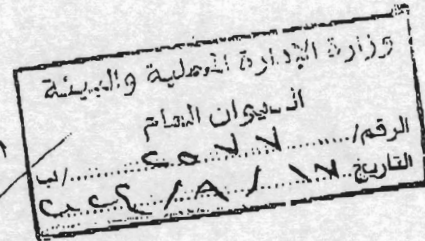 وزارة الإدارة المحلية والبيئة
الديوان العام
الرقم/ ٢٥٧٧ /ب
التاريخ ١٧ / ٨ /